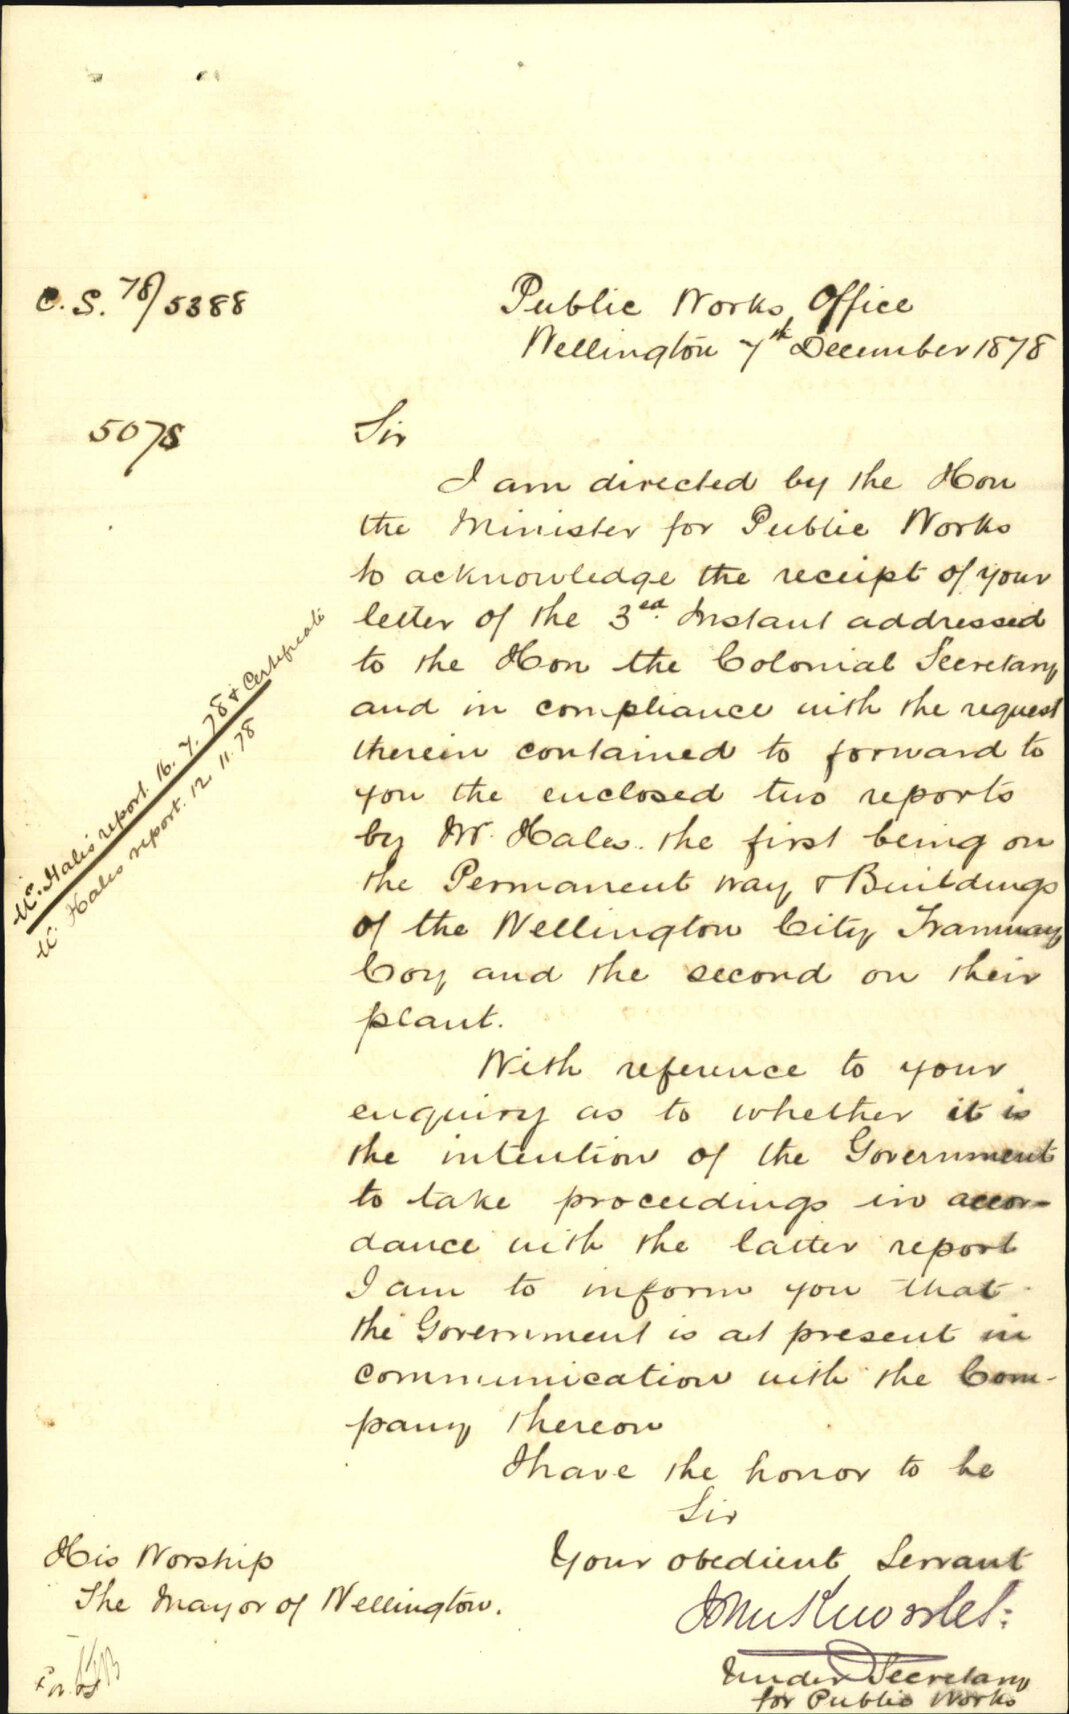 C. S. 78/5388
Public Works Office
Wellington 7th December 1878
5078
Sir
I am directed by the Hon
the Minister for Public Works
to acknowledge the receipt of your
letter of the 3rd. Instant addressed
to the Hon the Colonial Secretary
and in compliance with the request
therein contained to forward to
you the enclosed two reports
by Mr. Hales. the first being on
the Permanent way & Buildings
of the Wellington City Tramway
Coy and the second on their
plant.
With reference to your
enquiry as to whether it is
the intention of the Government
to take proceedings in accor-
dance with the latter report
I am to inform you that
the Government is at present in
communication with the Com-
pany thereon
I have the honor to be
Sir
Your obedient Servant
John Knowles.
Under Secretary
for Public Works
His Worship
The Mayor of Wellington.
Mr. Hales report. 16. 7. 78 & Certificate
Mr. Hales report. 12. 11. 78